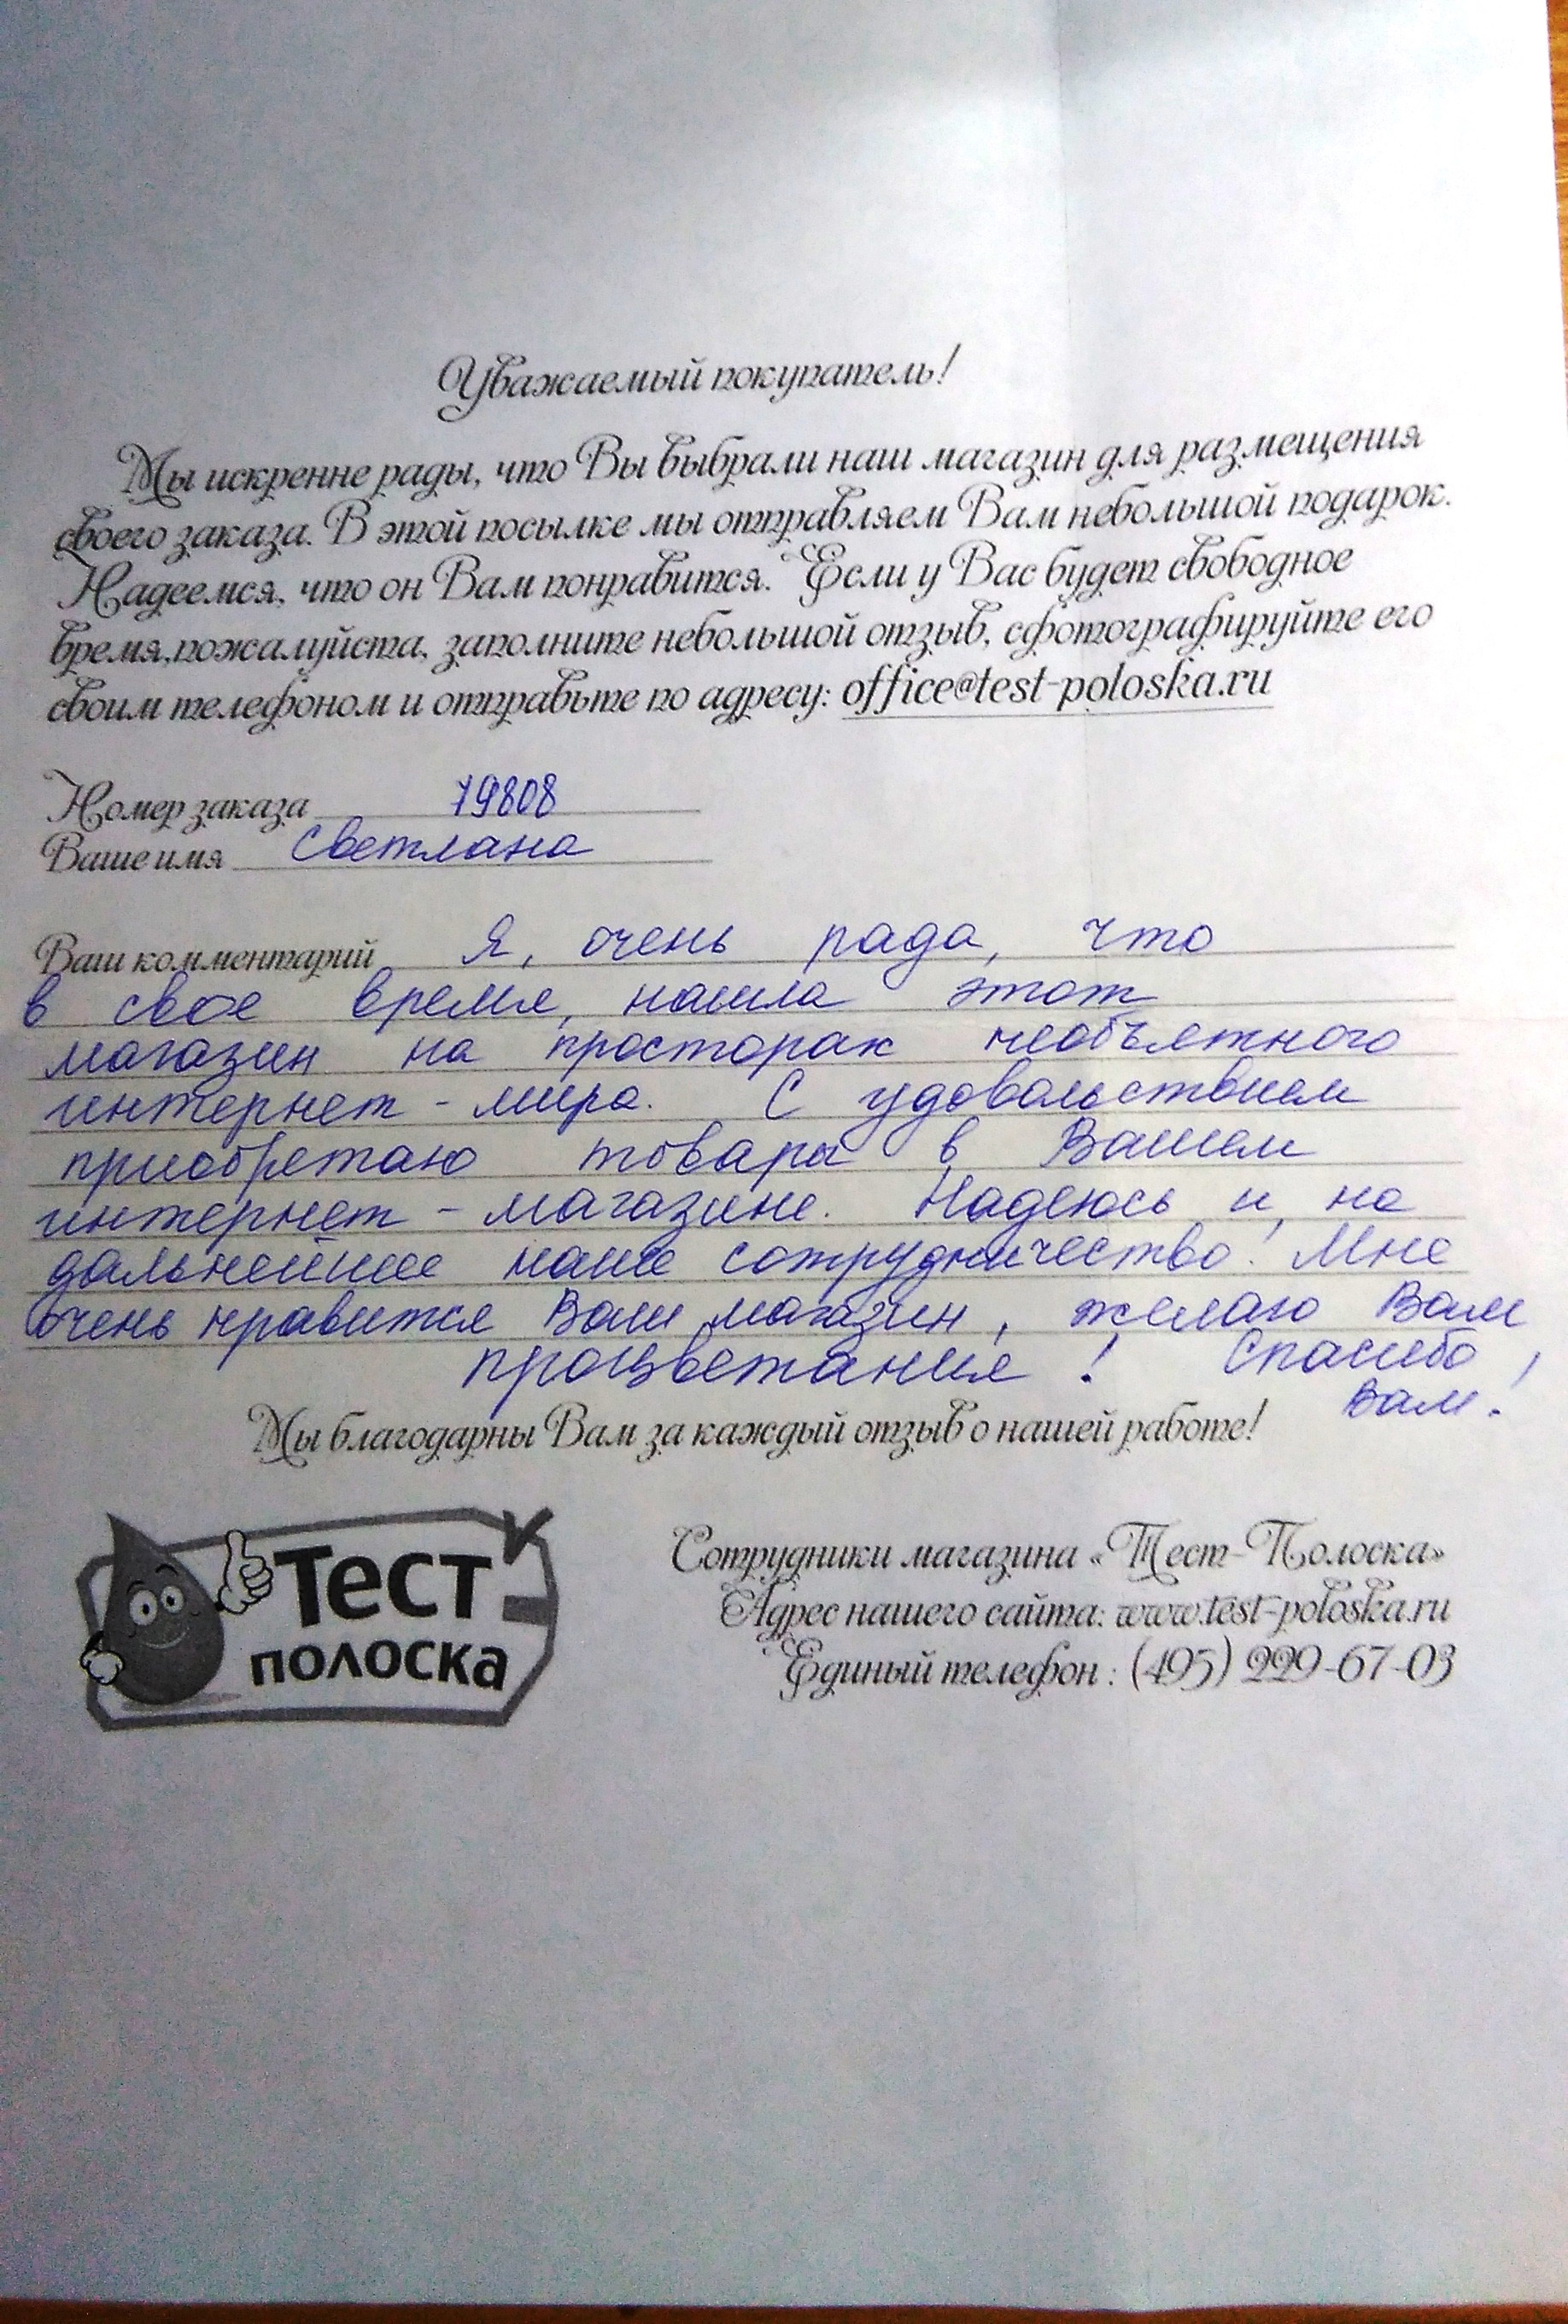 Уважаемый покупатель!
Мы искренне рады, что Вы выбрали наш магазин для размещения
своего заказа. В этой посылке мы отправляем Вам небольшой подарок.
Надеемся, что он Вам понравится. Если у Вас будет свободное
время,пожалуйста, заполните небольшой отзыв, сфотографируйте его
своим телефоном и отправьте по адресу: office@test-poloska.ru
Номер заказа 79808
Ваше имя Светлана
Ваш комментарий Я, очень рада, что
в свое время, нашла этот
магазин на просторах необъятного
интернет - мира. С удовольствием
приобретаю товары в Вашем
интернет - магазине. Надеюсь и на
дальнейшее наше сотрудничество! Мне
очень нравится Ваш магазин, желаю Вам
процветания! Спасибо
Вам!
Мы благодарны Вам за каждый отзыв о нашей работе!
Тест
полоска
Сотрудники магазина «Тест-Полоска»
Адрес нашего сайта: www.test-poloska.ru
Единый телефон : (495) 229-67-03